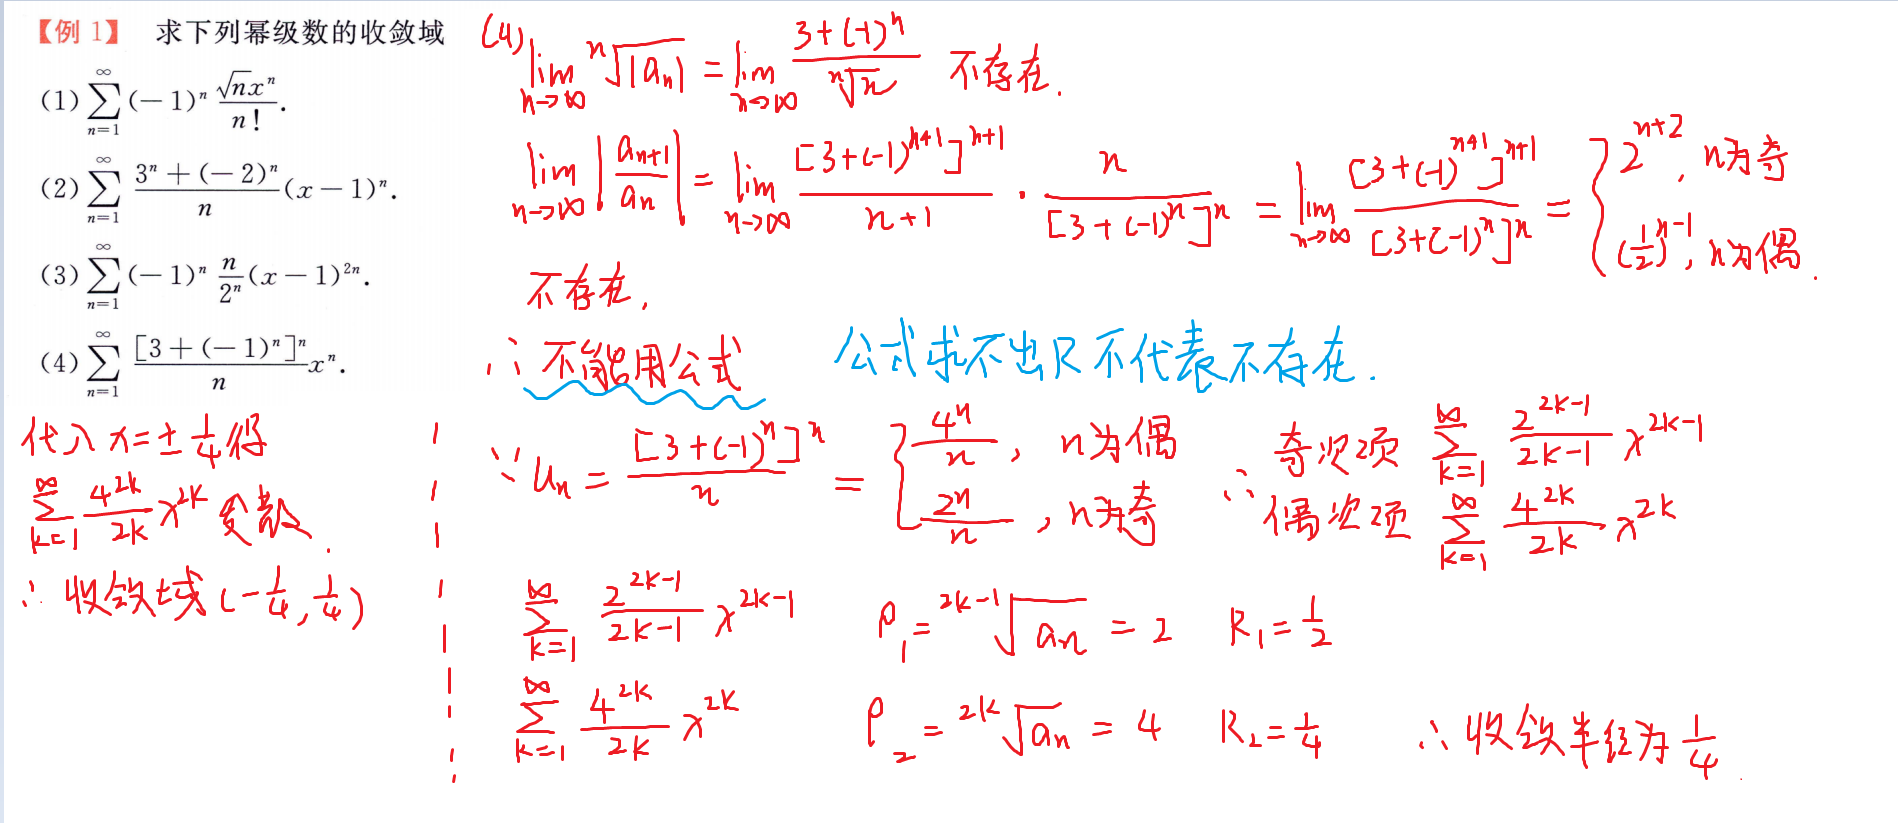 【例 1】 求下列幂级数的收敛域
(1) $\sum_{n=1}^{\infty}(-1)^n\frac{\sqrt{n}x^n}{n!}$.
(2) $\sum_{n=1}^{\infty}\frac{3^n+(-2)^n}{n}(x-1)^n$.
(3) $\sum_{n=1}^{\infty}(-1)^n\frac{n}{2^n}(x-1)^{2n}$.
(4) $\sum_{n=1}^{\infty}\frac{[3+(-1)^n]^n}{n}x^n$.
(4) $\lim_{n\to\infty}\sqrt[n]{|a_n|}=\lim_{n\to\infty}\frac{3+(-1)^n}{\sqrt[n]{n}}$ 不存在.
$\lim_{n\to\infty}\left|\frac{a_{n+1}}{a_n}\right|=\lim_{n\to\infty}\frac{[3+(-1)^{n+1}]^{n+1}}{n+1}\cdot\frac{n}{[3+(-1)^n]^n}=\lim_{n\to\infty}\frac{[3+(-1)^{n+1}]^{n+1}}{[3+(-1)^n]^n}=\begin{cases}2^{n+2}, n为奇\\(\frac{1}{2})^{n-1}, n为偶.\end{cases}$
不存在.
∴ 不能用公式 公式求不出R不代表不存在.
∵ $u_n=\frac{[3+(-1)^n]^n}{n}=\begin{cases}\frac{4^n}{n}, n为偶\\\frac{2^n}{n}, n为奇\end{cases}$
∴ 奇次项 $\sum_{k=1}^{\infty}\frac{2^{2k-1}}{2k-1}x^{2k-1}$
偶次项 $\sum_{k=1}^{\infty}\frac{4^{2k}}{2k}x^{2k}$
$\sum_{k=1}^{\infty}\frac{2^{2k-1}}{2k-1}x^{2k-1}$ $\rho_1=\sqrt[2k-1]{a_n}=2$ $R_1=\frac{1}{2}$
$\sum_{k=1}^{\infty}\frac{4^{2k}}{2k}x^{2k}$ $\rho_2=\sqrt[2k]{a_n}=4$ $R_2=\frac{1}{4}$ ∴ 收敛半径为 $\frac{1}{4}$.
代入 $x=\pm\frac{1}{4}$ 得
$\sum_{k=1}^{\infty}\frac{4^{2k}}{2k}x^{2k}$ 发散.
∴ 收敛域 $(-\frac{1}{4},\frac{1}{4})$